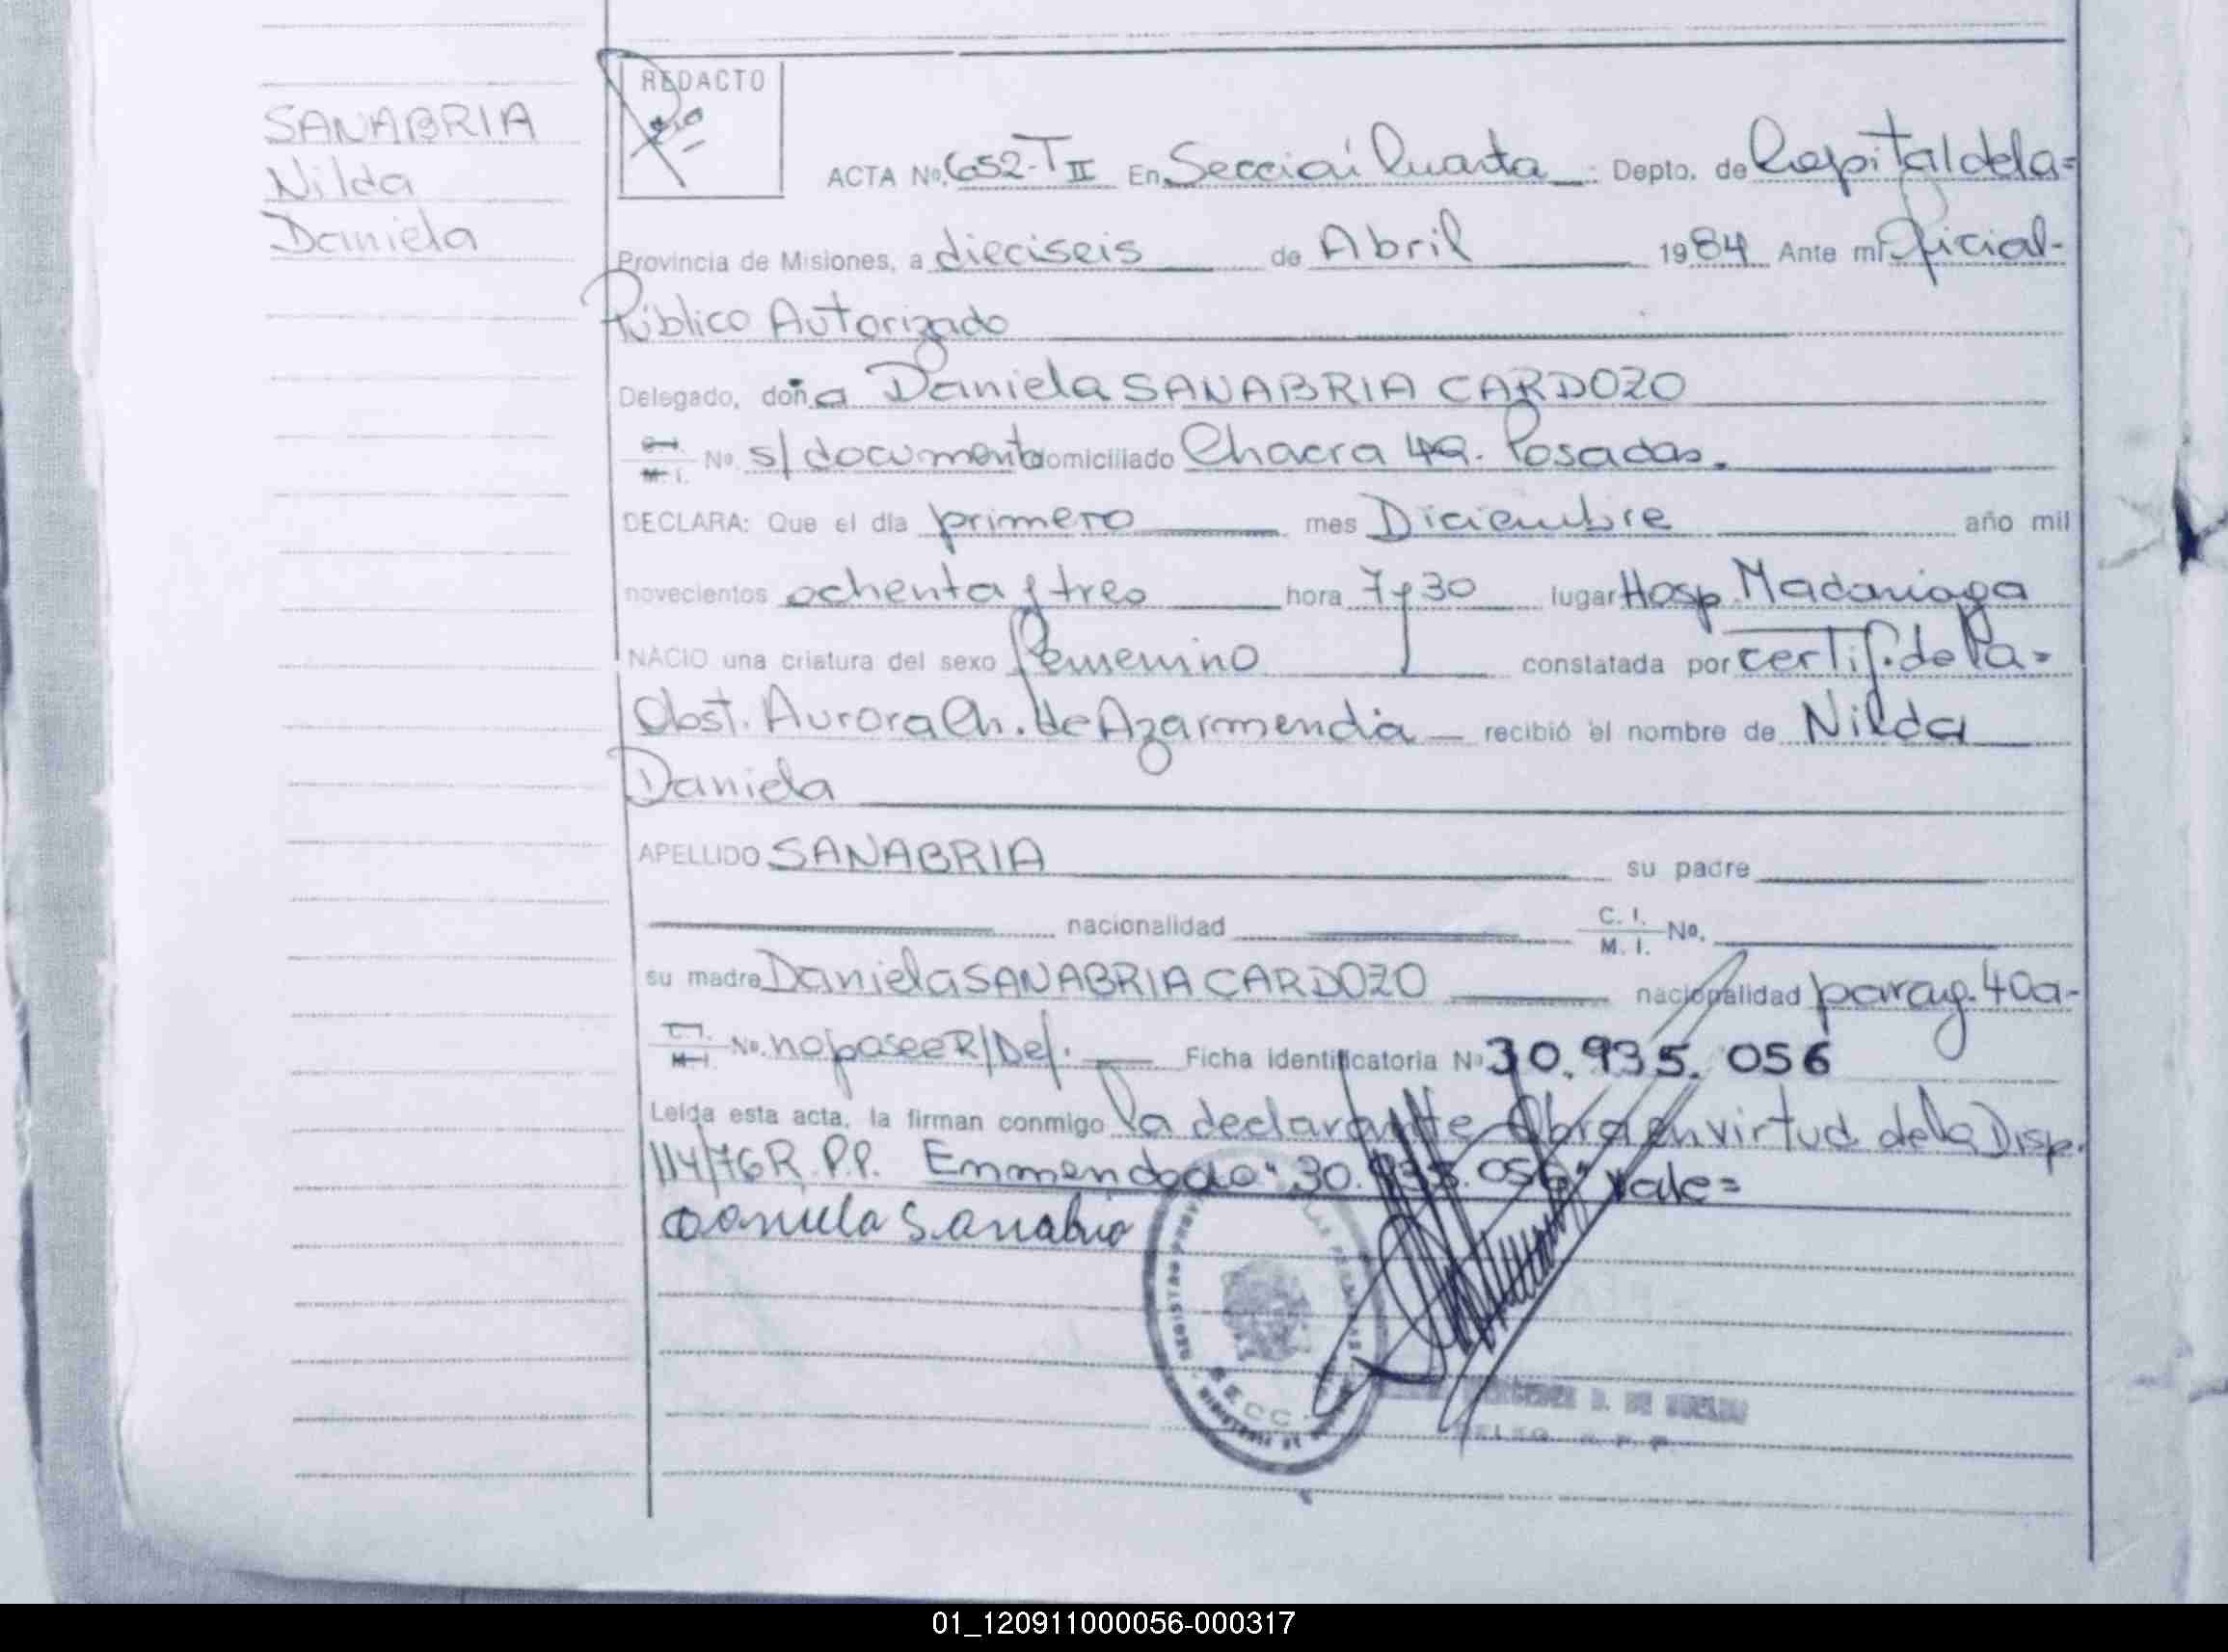 SANABRIA
Nilda
Daniela
REDACTO
ACTA Nº 652-T II En Sección Cuarta Depto. de Capital de la=
Provincia de Misiones, a dieciseis de Abril 1984 Ante mi Oficial-
Público Autorizado
Delegado, doña Daniela SANABRIA CARDOZO
C. I. M. I. Nº s/documento domiciliado Chacra 49. Posadas.
DECLARA: Que el día primero mes Diciembre año mil
novecientos ochenta y tres hora 7 y 30 lugar Hosp. Madariaga
NACIO una criatura del sexo femenino constatada por certif. de la=
Obst. Aurora Ch. de Azarmendia recibió el nombre de Nilda
Daniela
APELLIDO SANABRIA su padre
nacionalidad C. I. M. I. Nº.
su madre Daniela SANABRIA CARDOZO nacionalidad parag. 40a-
C. I. M. I. Nº. no posee R/Def. Ficha identificatoria Nº 30.935.056
Leida esta acta, la firman conmigo la declarante Obra en virtud de la Disp.
114/76 R.P.P. Enmendado "30.935.056" vale=
Daniela Sanabria
REGISTRO PROV. DE LAS PERSONAS
SECC.
D. DE
DELEG. R. P. P.
01_120911000056-000317